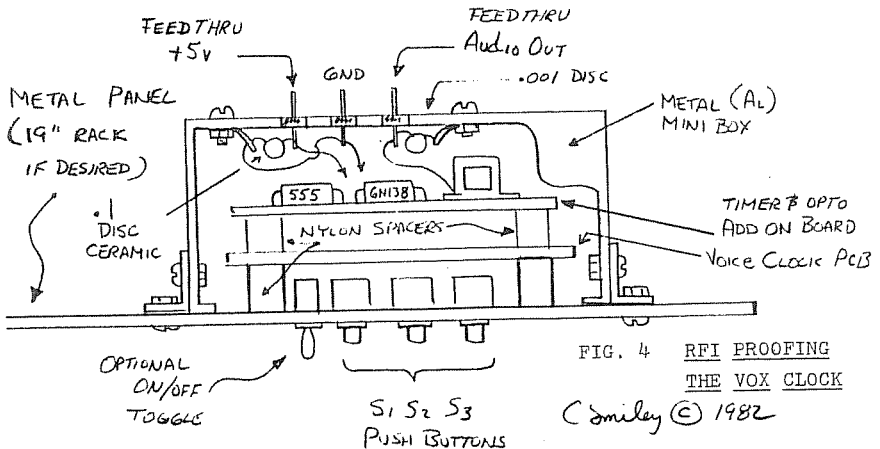 FEEDTHRU
+5V
GND
FEEDTHRU
Audio Out
.001 DISC
METAL PANEL
(19" RACK
IF DESIRED)
METAL (AL)
MINI BOX
.1
DISC
CERAMIC
555
6N138
NYLON SPACERS
TIMER & OPTO
ADD ON BOARD
VOICE CLOCK PCB
OPTIONAL
ON/OFF
TOGGLE
S1 S2 S3
PUSH BUTTONS
FIG. 4 RFI PROOFING
THE VOX CLOCK
C Smiley © 1982